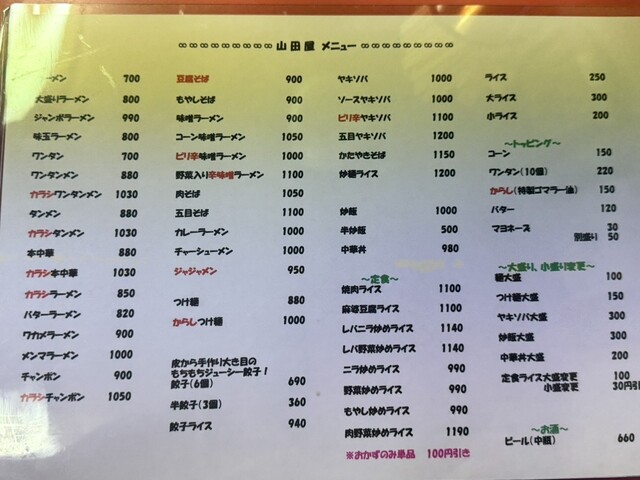 ∞∞∞∞∞∞∞∞∞ 山田屋 メニュー ∞∞∞∞∞∞∞∞∞
ーメン 700
大盛りラーメン 800
ジャンボラーメン 990
味玉ラーメン 800
ワンタン 700
ワンタンメン 880
カラシワンタンメン 1030
タンメン 880
カラシタンメン 1030
本中華 880
カラシ本中華 1030
カラシラーメン 850
バターラーメン 820
ワカメラーメン 900
メンマラーメン 1000
チャンポン 900
カラシチャンポン 1050
豆腐そば 900
もやしそば 900
味噌ラーメン 900
コーン味噌ラーメン 1050
ピリ辛味噌ラーメン 1000
野菜入り辛味噌ラーメン 1100
肉そば 1050
五目そば 1100
カレーラーメン 1000
チャーシューメン 1000
ジャジャメン 950
つけ麺 880
からしつけ麺 1000
皮から手作り大き目の
もちもちジューシー餃子！
餃子(6個) 690
半餃子(3個) 360
餃子ライス 940
ヤキソバ 1000
ソースヤキソバ 1000
ピリ辛ヤキソバ 1100
五目ヤキソバ 1200
かたやきそば 1150
炒麺ライス 1200
炒飯 1000
半炒飯 500
中華丼 980
～定食～
焼肉ライス 1100
麻婆豆腐ライス 1100
レバニラ炒めライス 1140
レバ野菜炒めライス 1140
ニラ炒めライス 990
野菜炒めライス 990
もやし炒めライス 990
肉野菜炒めライス 1190
※おかずのみ単品 100円引き
ライス 250
大ライス 300
小ライス 200
～トッピング～
コーン 150
ワンタン(10個) 220
からし(特製ゴマラー油) 150
バター 120
マヨネーズ 30
別盛り 50
～大盛り、小盛り変更～
麺大盛 100
つけ麺大盛 150
ヤキソバ大盛 300
炒飯大盛 300
中華丼大盛 200
定食ライス大盛変更 100
小盛変更 30円引
～お酒～
ビール(中瓶) 660